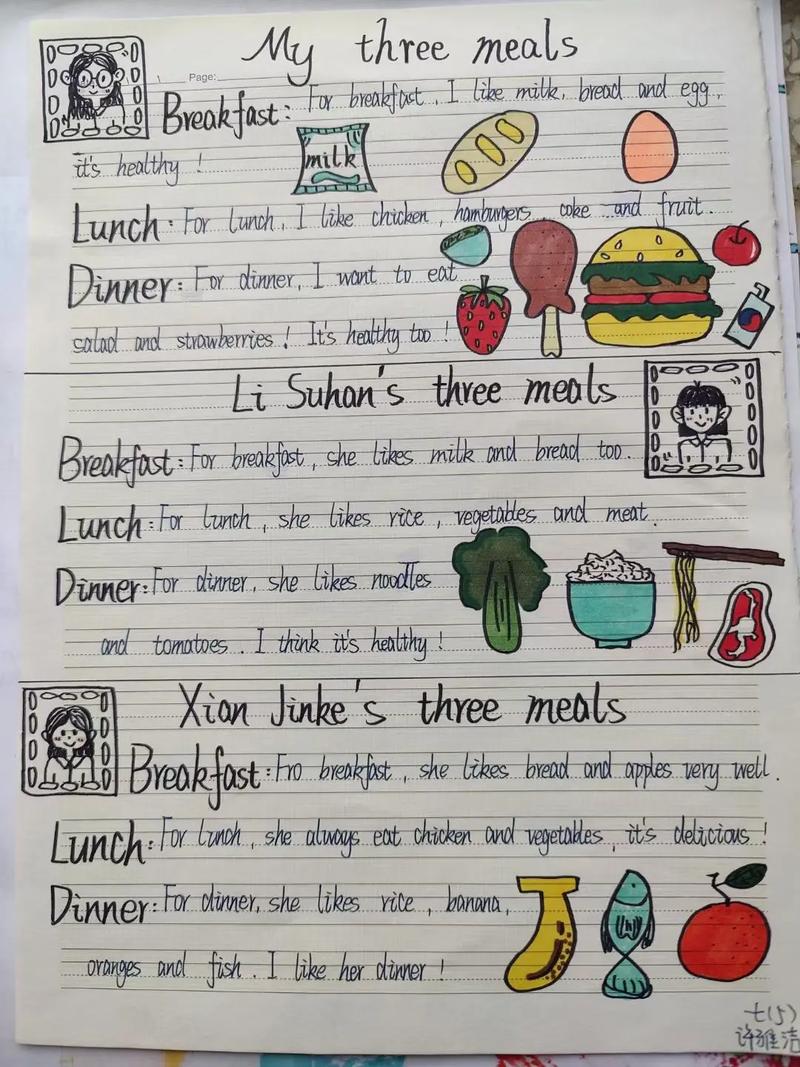 My three meals
Page:
Breakfast: For breakfast, I like milk, bread and egg,
it's healthy !
milk
Lunch: For lunch, I like chicken, hamburgers, coke and fruit.
Dinner: For dinner, I want to eat
salad and strawberries ! It's healthy too !
Li Suhan's three meals
Breakfast: For breakfast, she likes milk and bread too.
Lunch: For lunch, she likes rice, vegetables and meat.
Dinner: For dinner, she likes noodles
and tomatoes. I think it's healthy !
Xian Jinke's three meals
Breakfast: Fro breakfast, she likes bread and apples very well.
Lunch: For lunch, she always eat chicken and vegetables, it's delicious !
Dinner: For dinner, she likes rice, banana,
oranges and fish. I like her dinner !
七(5)
许雅洁